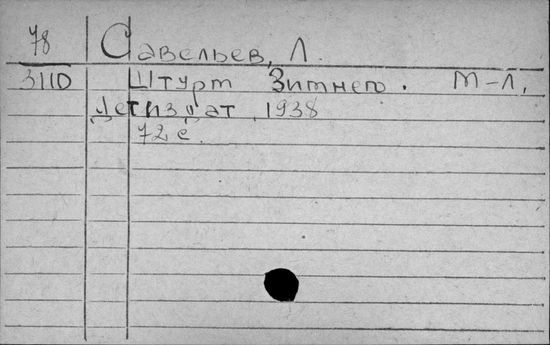 78 Савельев, Л.
3110 Штурм Зимнего. М-Л,
Детиздат, 1938
72 с.